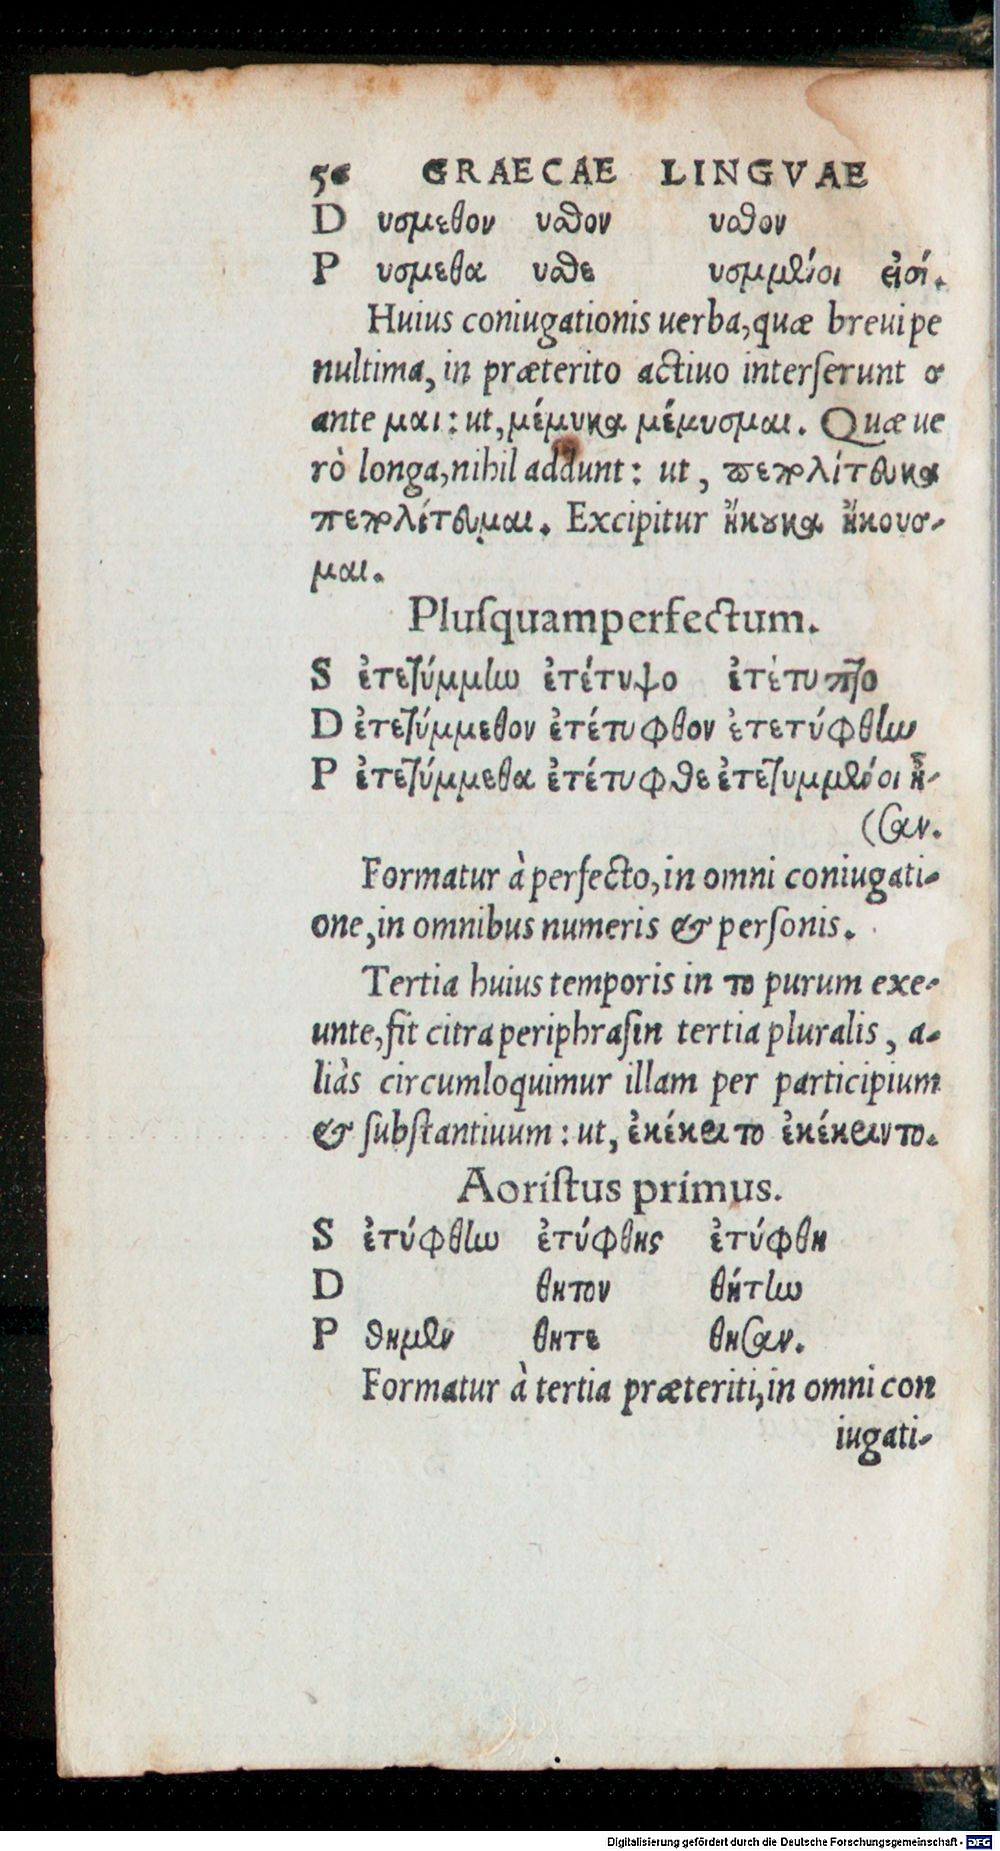 56 GRAECAE LINGVAE
D υσμεθον υσθον υσθον
P υσμεθα υσθε υσμμένοι εἰσί.
Huius coniugationis uerba, quæ breui pe
nultima, in præterito actiuo interserunt σ
ante μαι: ut, μέμυκα μέμυσμαι. Quæ ue
rò longa, nihil addunt: ut,
Excipitur ἤκουκα ἤκουσ-
μαι.
Plusquamperfectum.
S ἐτετύμμην ἐτέτυψο ἐτέτυπτο
D ἐτετύμμεθον ἐτέτυφθον ἐτετύφθην
P ἐτετύμμεθα ἐτέτυφθε ἐτετυμμένοι ἦ-
(σαν.
Formatur à perfecto, in omni coniugati-
one, in omnibus numeris & personis.
Tertia huius temporis in το purum exe-
unte, fit citra periphrasin tertia pluralis, a-
liàs circumloquimur illam per participium
& substantiuum: ut, ἐκέκειτο ἐκέκειντο.
Aoristus primus.
S ἐτύφθην ἐτύφθης ἐτύφθη
D θητον θήτην
P θημεν θητε θησαν.
Formatur à tertia præteriti, in omni con
iugati-
Digitalisierung gefördert durch die Deutsche Forschungsgemeinschaft - DFG